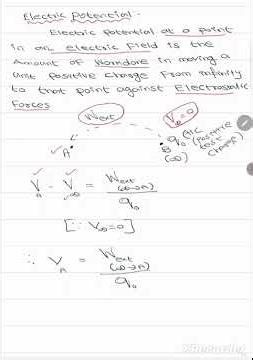 Electric Potential:-
Electric Potential at a Point
in an electric Field is the
Amount of Workdone in moving a
Unit Positive charge From infinity
to that point against Electrostatic
Forces
Wext
V∞=0
A
q₀
B
(∞)
(Positive
test
charge)
V_A - V_∞ = Wext (∞→A) / q₀
[∵ V∞=0]
∴ V_A = Wext (∞→A) / q₀